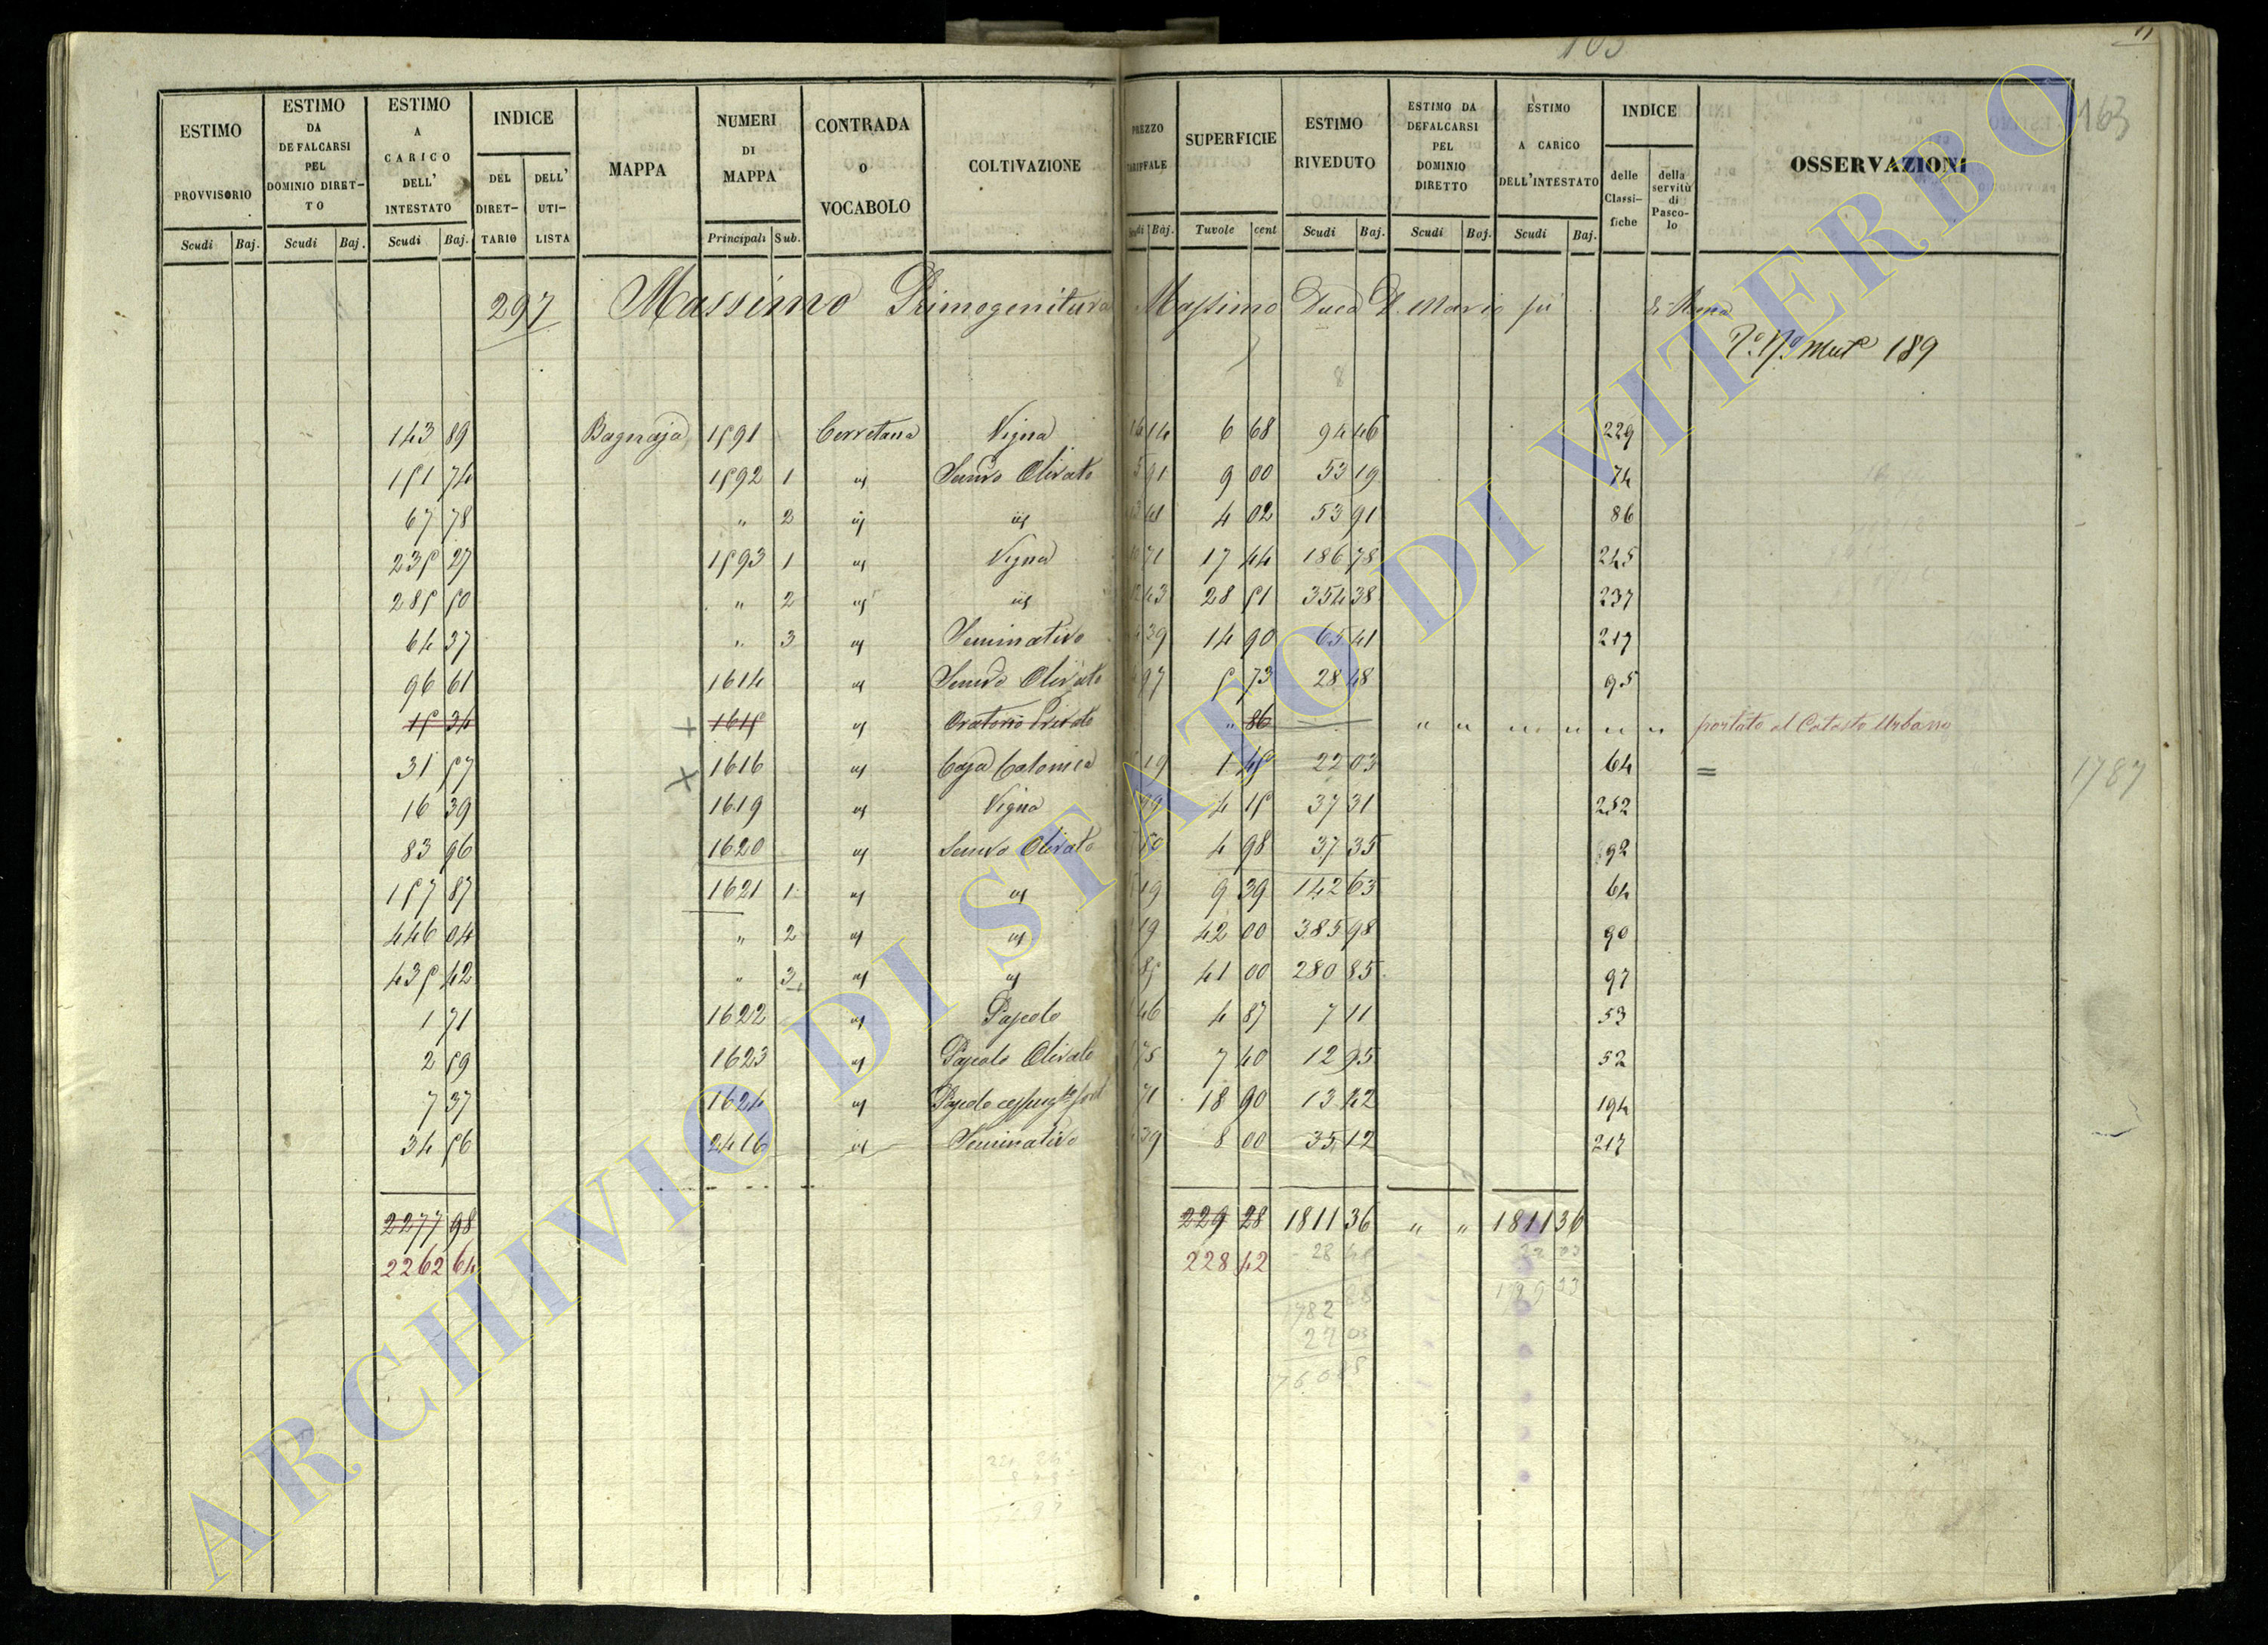 103
163
ESTIMO PROVVISORIO
ESTIMO DA DEFALCARSI PEL DOMINIO DIRET-TO
ESTIMO A CARICO DELL' INTESTATO
INDICE
DEL DIRET-TARIO
DELL' UTI-LISTA
MAPPA
NUMERI DI MAPPA
CONTRADA o VOCABOLO
COLTIVAZIONE
PREZZO TARIFFALE
SUPERFICIE
ESTIMO RIVEDUTO
ESTIMO DA DEFALCARSI PEL DOMINIO DIRETTO
ESTIMO A CARICO DELL'INTESTATO
INDICE
delle Classi-fiche
della servitù di Pasco-lo
OSSERVAZIONI
Scudi Baj. Scudi Baj. Scudi Baj. Principali Sub. Baj. Tuvole cent Scudi Baj. Scudi Baj. Scudi Baj.
297 Massimo Primogenitura Massimo Duca D. Mario di Roma
189
143 89 Bagnaja 1591 Cerretana Vigna 14 6 68 94 46 229
151 74 1592 1 " Olivato 91 9 00 53 19 74
67 78 " 2 " " 41 4 02 53 91 86
235 27 1593 1 " Vigna 71 17 44 186 78 245
285 50 " 2 " " 43 28 51 354 38 237
64 37 " 3 " Seminativo 39 14 90 65 41 217
96 61 1614 " Olivato 97 5 73 28 48 95
15 34 1615 " Oratorio Privato " 86 " " " " " " portato al Catasto Urbano
31 57 1616 " Casa Colonica 19 1 45 22 03 64 =
1787
16 39 1619 " Vigna 99 4 15 37 31 252
83 96 1620 " Olivato 50 4 98 37 35 92
157 87 1621 1 " " 19 9 39 142 63 64
446 04 " 2 " " 19 42 00 385 98 90
435 42 " 3 " " 85 41 00 280 85 97
1 71 1622 " Pascolo 46 4 87 7 11 53
2 59 1623 " Pascolo Olivato 75 7 40 12 95 52
7 37 1624 " Pascolo 71 18 90 13 42 194
34 56 2416 " Seminativo 39 8 00 35 12 217
2277 98 229 28 1811 36 " " 1811 36
2262 64 228 42 28 48 22 03
1782 88 1789 33
22 03
ARCHIVIO DI STATO DI VITERBO